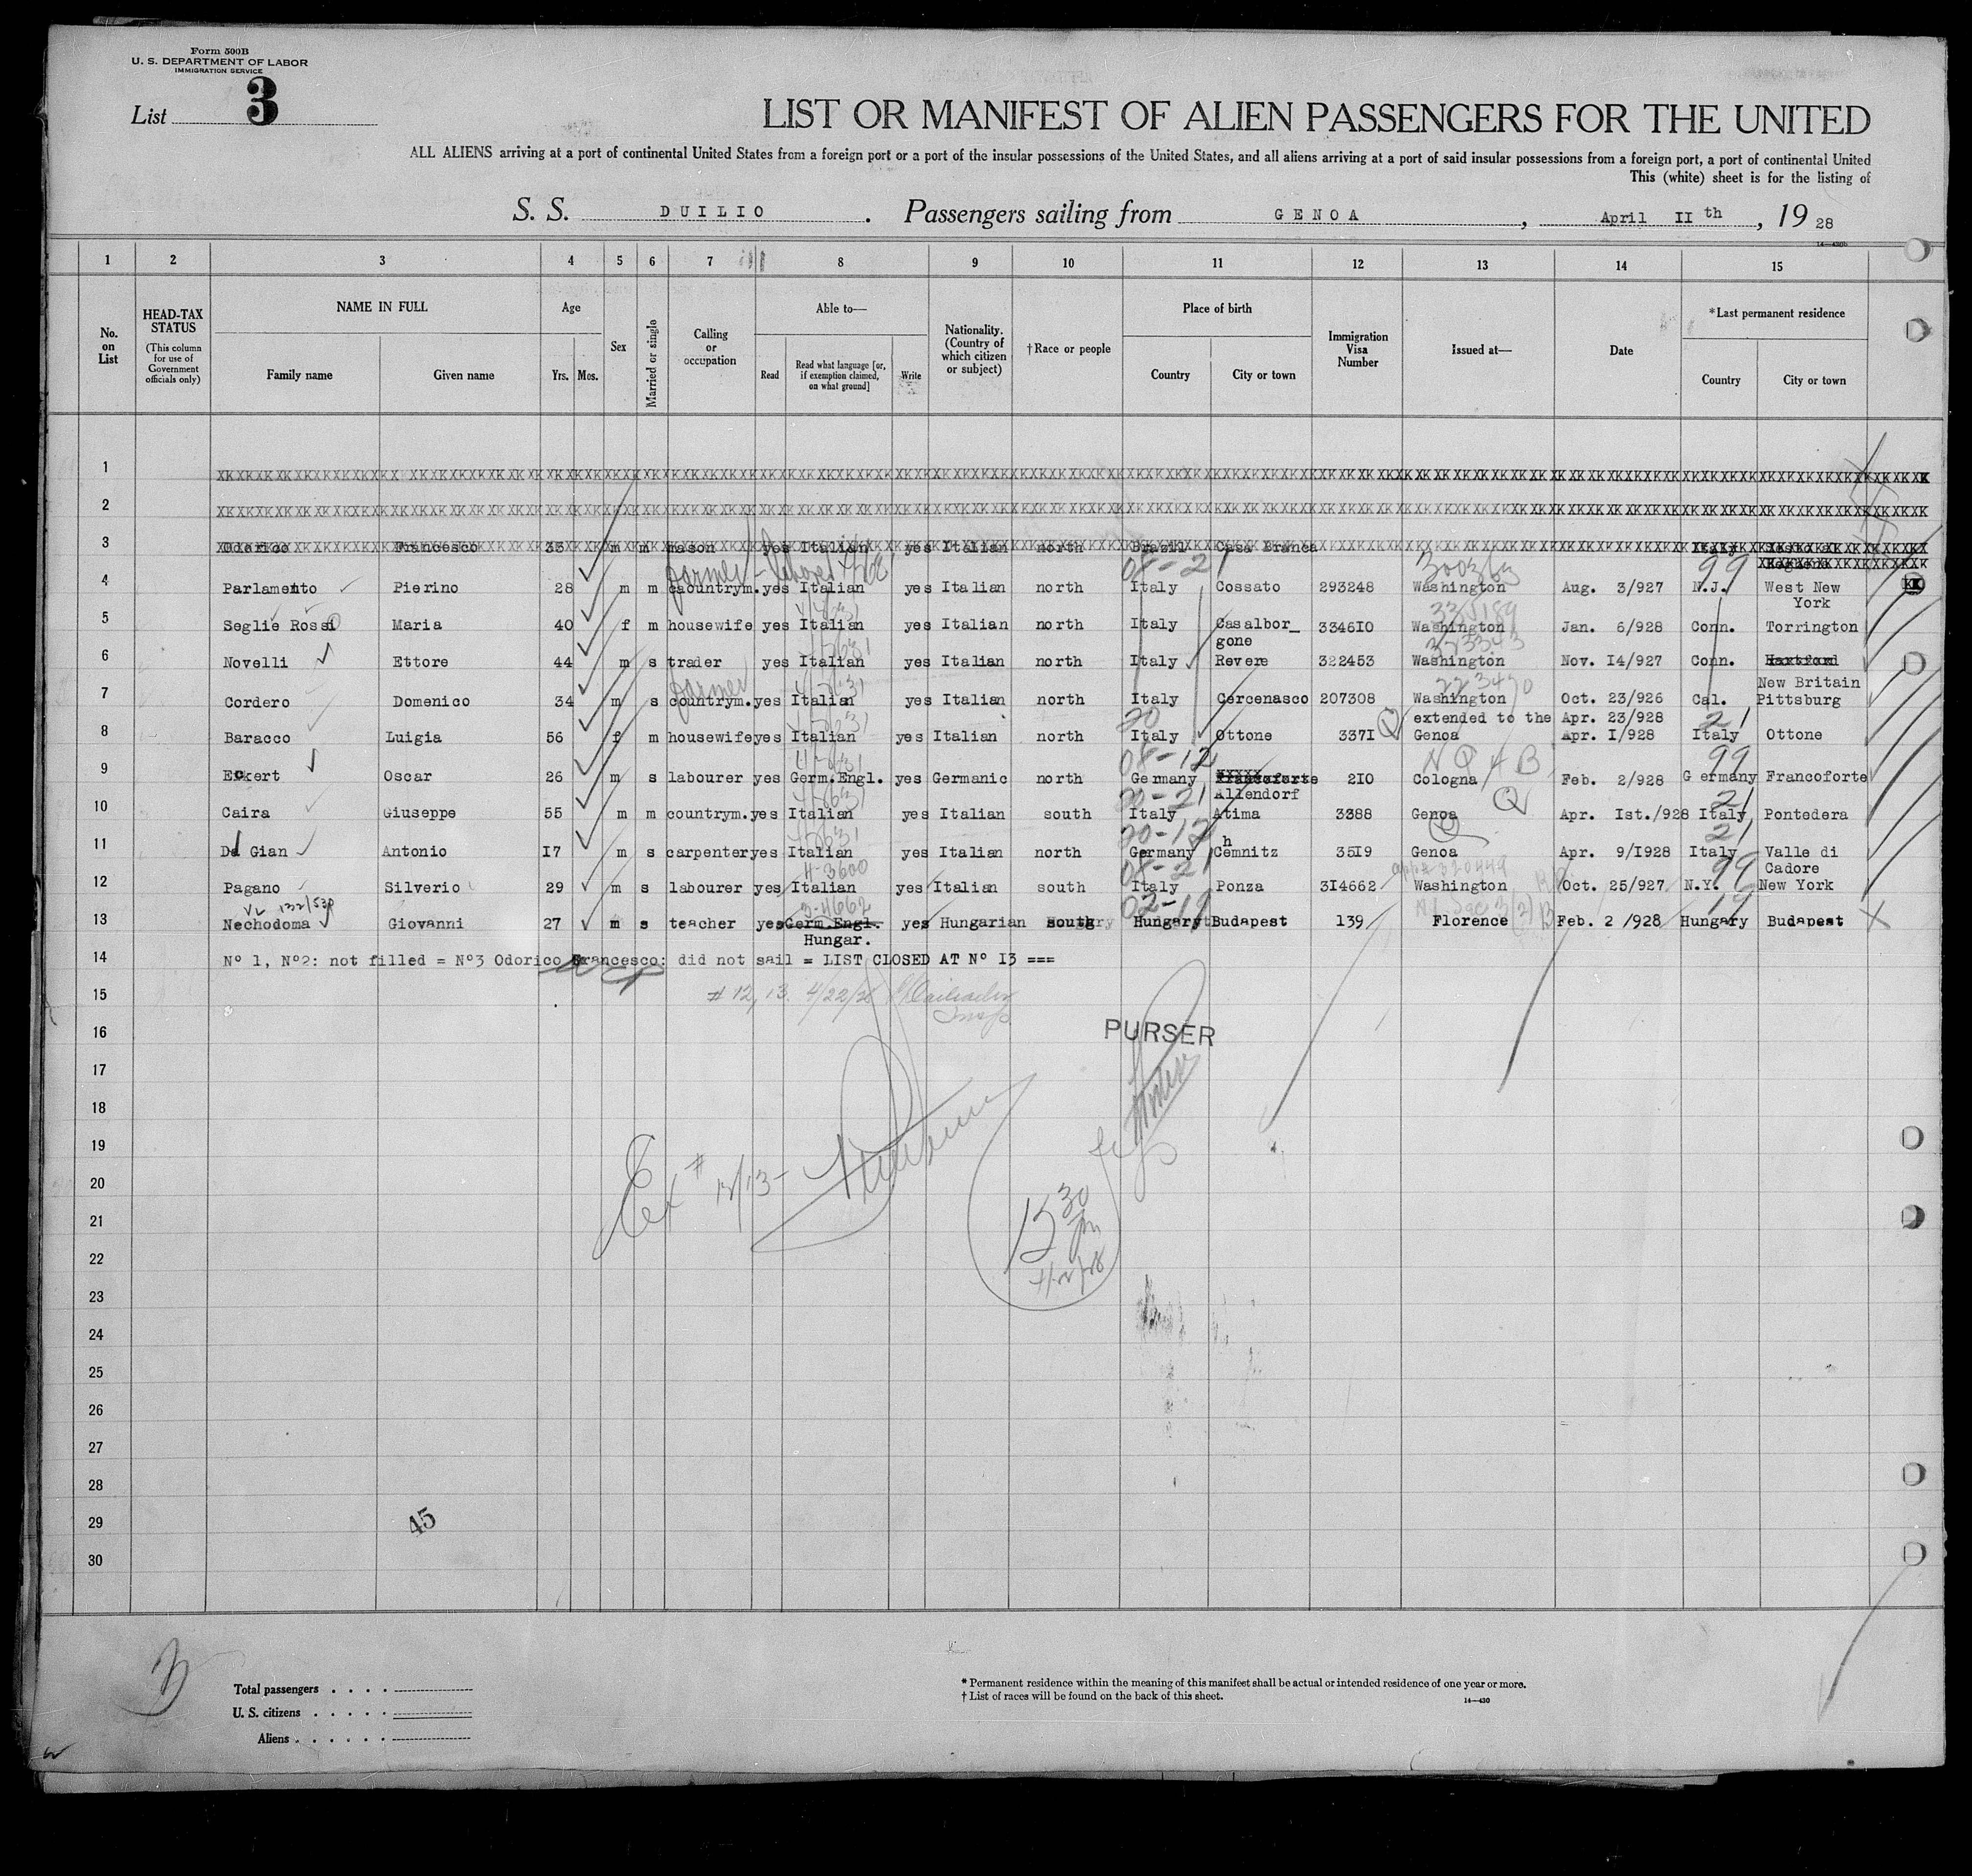 Form 500B
U. S. DEPARTMENT OF LABOR
IMMIGRATION SERVICE
List 3
LIST OR MANIFEST OF ALIEN PASSENGERS FOR THE UNITED
ALL ALIENS arriving at a port of continental United States from a foreign port or a port of the insular possessions of the United States, and all aliens arriving at a port of said insular possessions from a foreign port, a port of continental United
This (white) sheet is for the listing of
S. S. DUILIO . Passengers sailing from GENOA , April IIth , 19 28
14—430b
1 2 3 4 5 6 7 8 9 10 11 12 13 14 15
No. on List
HEAD-TAX STATUS
(This column for use of Government officials only)
NAME IN FULL
Family name Given name
Age
Yrs. Mos.
Sex
Married or single
Calling or occupation
Able to—
Read
Read what language [or, if exemption claimed, on what ground]
Write
Nationality. (Country of which citizen or subject)
†Race or people
Place of birth
Country City or town
Immigration Visa Number
Issued at—
Date
*Last permanent residence
Country City or town
1
2
3 Odorico Francesco 35 m m mason yes Italian yes Italian north Brazil Casa Branca Italy
farmer 08-21 300363 99
4 Parlamento Pierino 28 m m countrym. yes Italian yes Italian north Italy Cossato 293248 Washington Aug. 3/927 N.J. West New York
5 Seglie Rossi Maria 40 f m housewife yes Italian yes Italian north Italy Casalbor_gone 3346I0 Washington Jan. 6/928 Conn. Torrington
6 Novelli Ettore 44 m s trader yes Italian yes Italian north Italy Revere 322453 Washington Nov. I4/927 Conn. Hartford
New Britain
farmer 223470
7 Cordero Domenico 34 m s countrym. yes Italian yes Italian north Italy Cercenasco 207308 Washington Oct. 23/926 Cal. Pittsburg
extended to the Apr. 23/928
20 21
8 Baracco Luigia 56 f m housewife yes Italian yes Italian north Italy Ottone 337I Genoa Apr. I/928 Italy Ottone
08-12 NQ 4 B 99
9 Eckert Oscar 26 m s labourer yes Germ.Engl. yes Germanic north Germany Francoforte 2I0 Cologna Feb. 2/928 Germany Francoforte
Allendorf
20-21 Q 21
10 Caira Giuseppe 55 m m countrym. yes Italian yes Italian south Italy Atima 3388 Genoa Apr. Ist./928 Italy Pontedera
20-12 Q 21
11 De Gian Antonio I7 m s carpenter yes Italian yes Italian north Germany Chemnitz 35I9 Genoa Apr. 9/I928 Italy Valle di Cadore
4-3600 08-21 99
12 Pagano Silverio 29 m s labourer yes Italian yes Italian south Italy Ponza 3I4662 Washington Oct. 25/927 N.Y. New York
3-4662 02-19 19
13 Nechodoma Giovanni 27 m s teacher yes Germ.Engl. yes Hungarian Hungary Budapest 139 Florence Feb. 2 /928 Hungary Budapest
Hungar.
14 Nº 1, Nº2: not filled = Nº3 Odorico Francesco: did not sail = LIST CLOSED AT Nº I3 ===
15 # 12, 13. 4/22/28
16 PURSER
17
18
19
20
21
22
23
24
25
26
27
28
29 45
30
Total passengers . . . .
U. S. citizens . . . . .
Aliens . . . . . .
* Permanent residence within the meaning of this manifest shall be actual or intended residence of one year or more.
† List of races will be found on the back of this sheet.
14—430